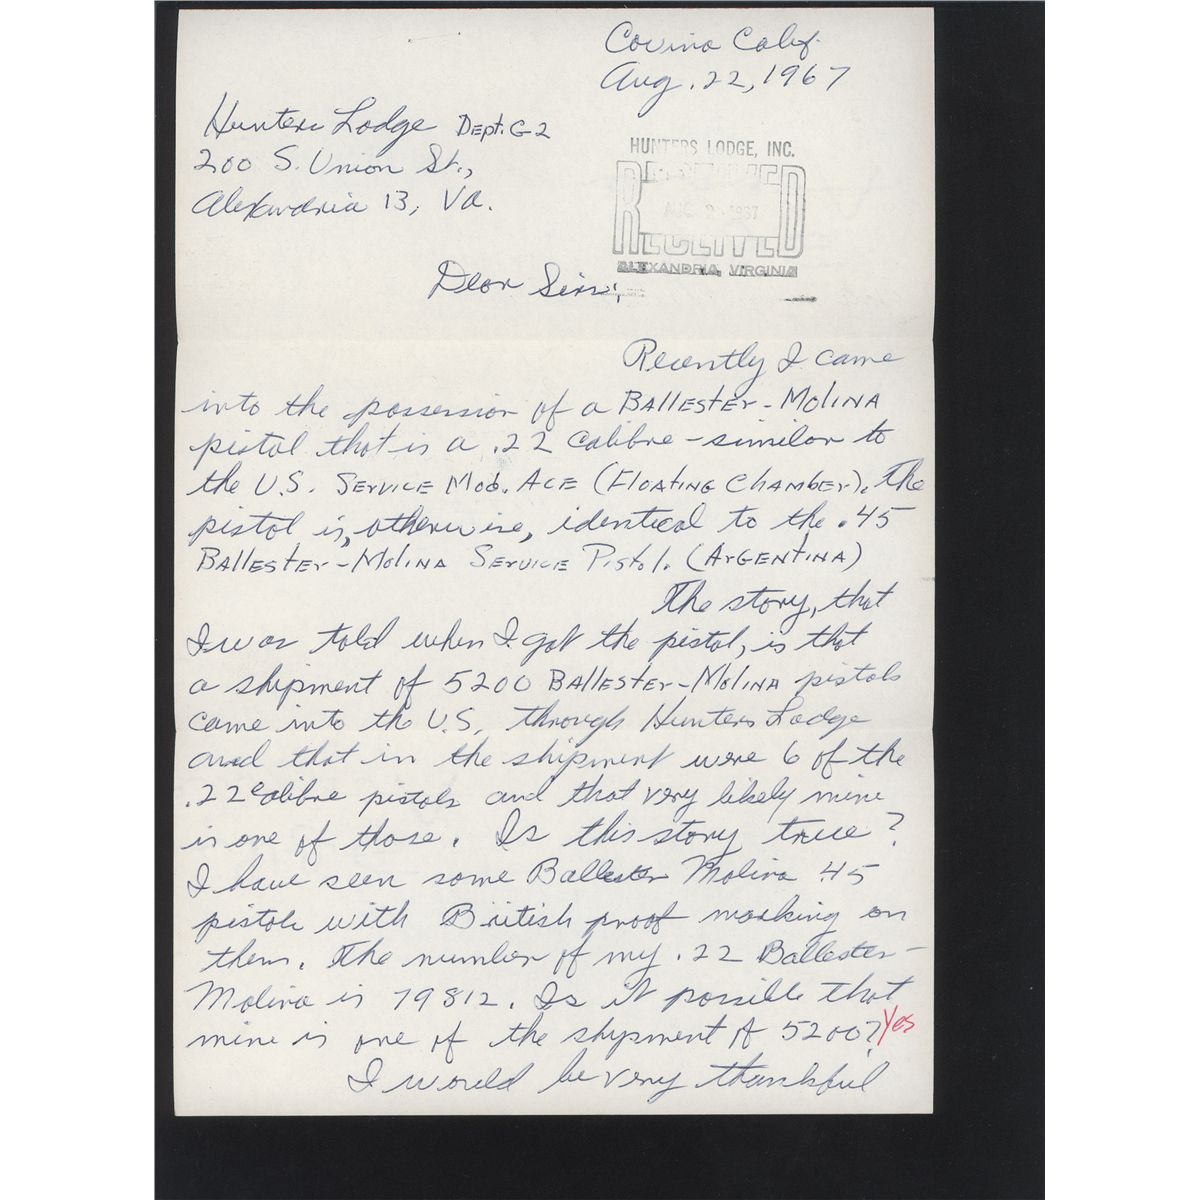 Covina Calif.
Aug. 22, 1967
Hunters Lodge Dept. G-2
200 S. Union St.,
Alexandria 13, Va.
HUNTERS LODGE, INC.
RECEIVED
AUG 1967
RECEIVED
ALEXANDRIA, VIRGINIA
Dear Sirs:
Recently I came
into the possession of a BALLESTER-MOLINA
pistol that is a .22 calibre - similar to
the U.S. SERVICE MOD. ACE (FLOATING CHAMBER). The
pistol is, otherwise, identical to the .45
BALLESTER-MOLINA SERVICE PISTOL. (ARGENTINA)
The story, that
I was told when I got the pistol, is that
a shipment of 5200 BALLESTER-MOLINA pistols
came into the U.S. through Hunters Lodge
and that in the shipment were 6 of the
.22 calibre pistols and that very likely mine
is one of those. Is this story true?
I have seen some Ballester Molina .45
pistols with British proof marking on
them. The number of my .22 Ballester-
Molina is 79812. Is it possible that
mine is one of the shipment of 5200? Yes
I would be very thankful